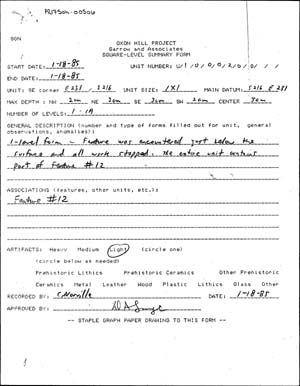 SGN
OXON HILL PROJECT
Garrow and Associates
SQUARE-LEVEL SUMMARY FORM
START DATE: 1-18-85 UNIT NUMBER: U/1/0/0/0/2/0/0/ / /
END DATE: 1-18-85
UNIT: SE corner E281, S216 UNIT SIZE: 1X1 MAIN DATUM: S216 E281
MAX DEPTH: NW 2cm NE 2cm SE 2cm SW 2cm CENTER 7cm
NUMBER OF LEVELS: 1-19
GENERAL DESCRIPTION (number and type of forms filled out for unit, general
observations, anomalies):
1-level form - Feature was encountered just below the
surface and all work stopped. The entire unit contains
part of Feature #12
ASSOCIATIONS (features, other units, etc.):
Feature #12
ARTIFACTS: Heavy Medium Light (circle one)
(circle below as needed)
Prehistoric Lithics Prehistoric Ceramics Other Prehistoric
Ceramics Metal Leather Wood Plastic Lithics Glass Other
RECORDED BY: C. Norville DATE: 1-18-85
APPROVED BY:
-- STAPLE GRAPH PAPER DRAWING TO THIS FORM --
1